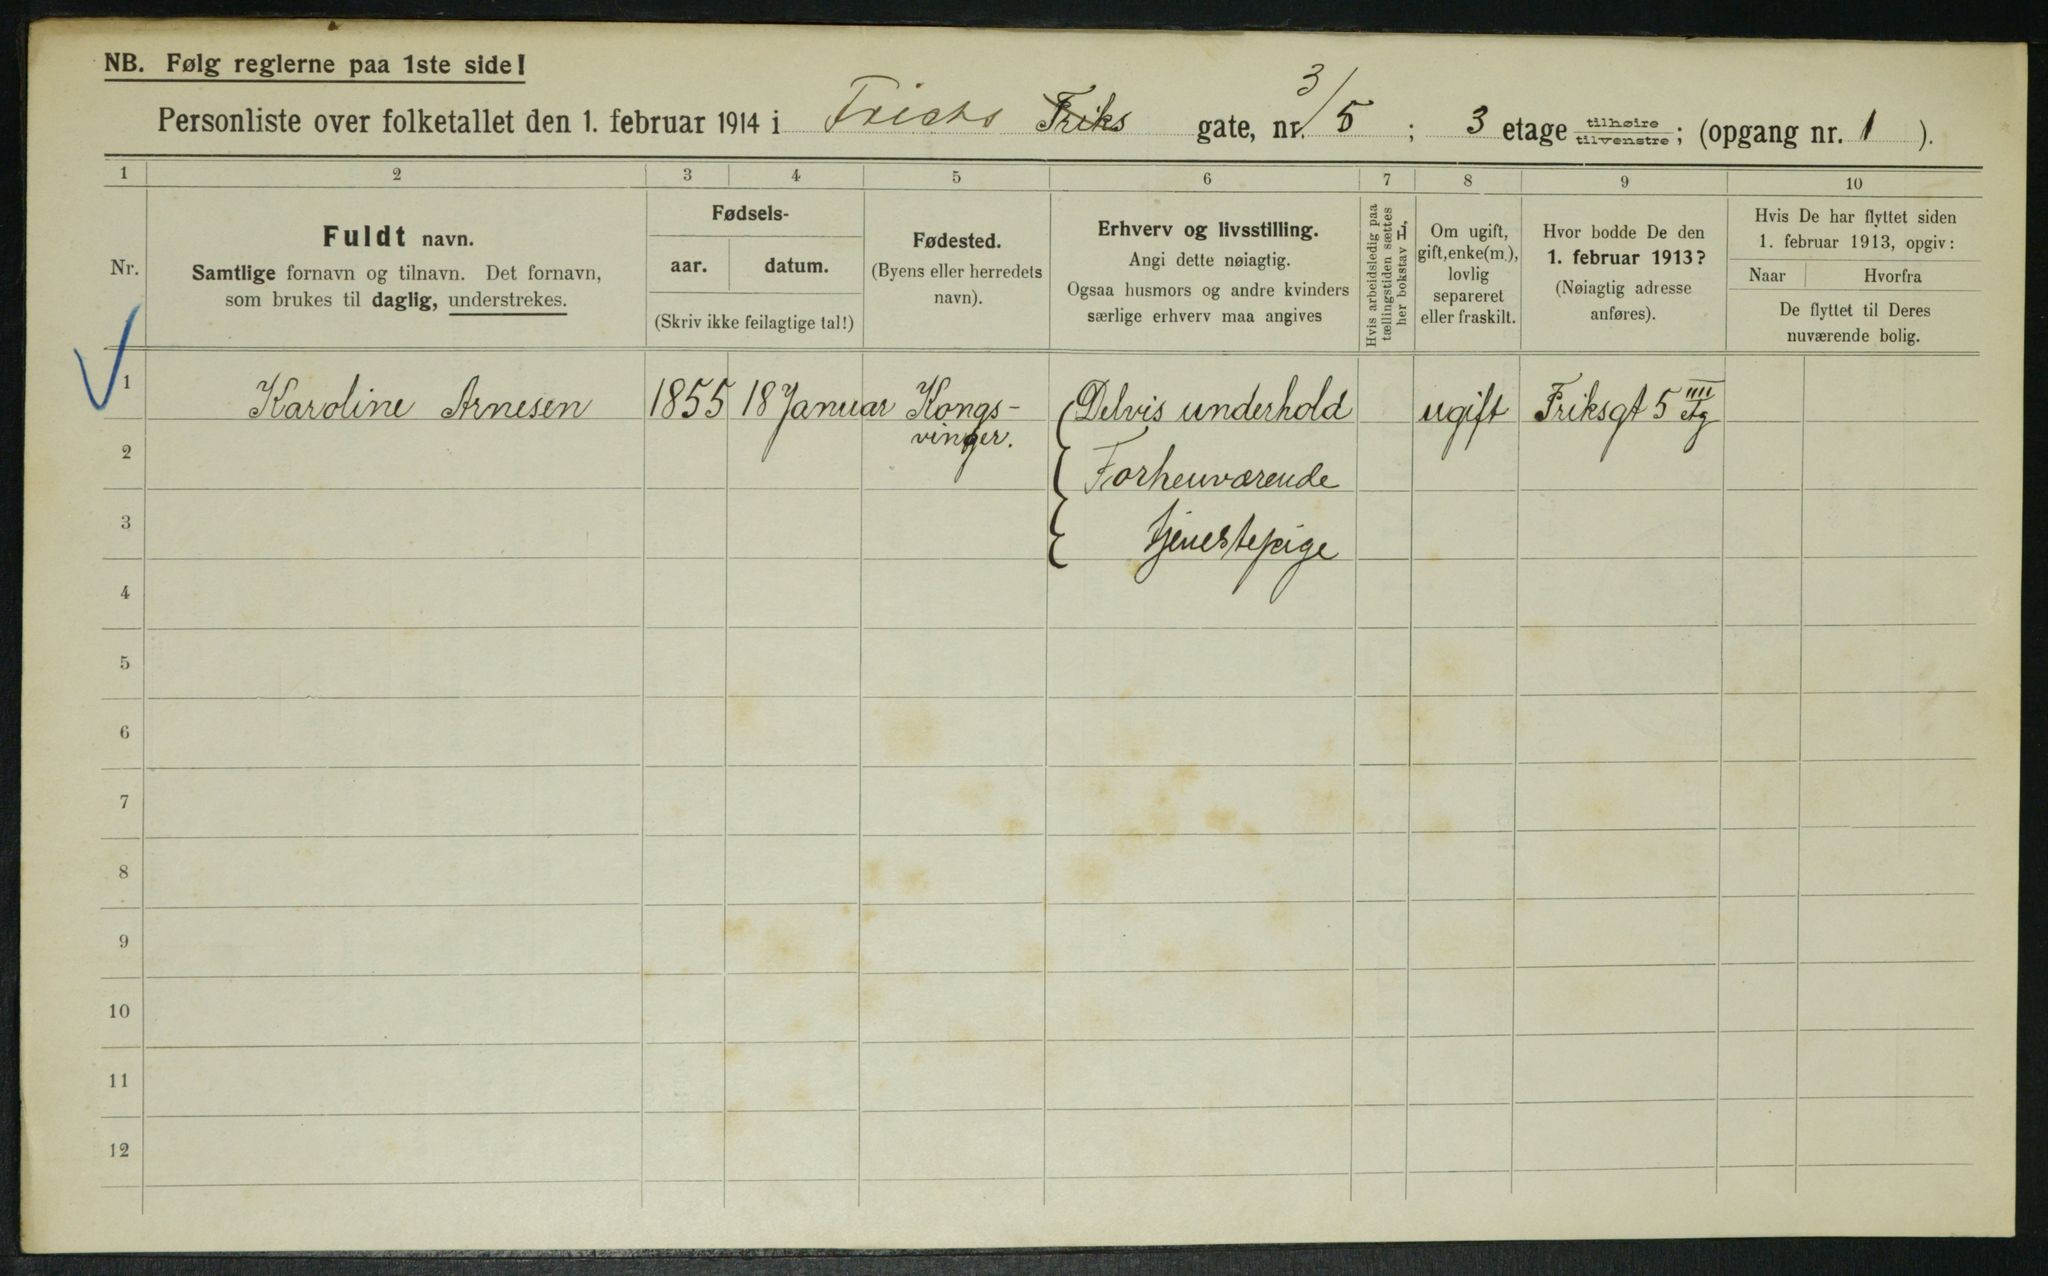 NB. Følg reglerne paa 1ste side!
Personliste over folketallet den 1. februar 1914 i Frichs Friks gate, nr. 3/5 ; 3 etage tilhøire tilvenstre; (opgang nr. 1 ).
1 2 3 4 5 6 7 8 9 10
Nr.
Fuldt navn.
Samtlige fornavn og tilnavn. Det fornavn,
som brukes til daglig, understrekes.
Fødsels-
aar. datum.
(Skriv ikke feilagtige tal!)
Fødested.
(Byens eller herredets
navn).
Erhverv og livsstilling.
Angi dette nøiagtig.
Ogsaa husmors og andre kvinders
særlige erhverv maa angives
Hvis arbeidsledig paa
tællingstiden sættes
her bokstav L,
Om ugift,
gift, enke(m.),
lovlig
separeret
eller fraskilt.
Hvor bodde De den
1. februar 1913?
(Nøiagtig adresse
anføres).
Hvis De har flyttet siden
1. februar 1913, opgiv:
Naar Hvorfra
De flyttet til Deres
nuværende bolig.
1 Karoline Arnesen 1855 18 Januar Kongs- Delvis underhold ugift Friksgt 5 IIII Etg
2 vinger.
Forhenværende
3 tjenestepige
4
5
6
7
8
9
10
11
12